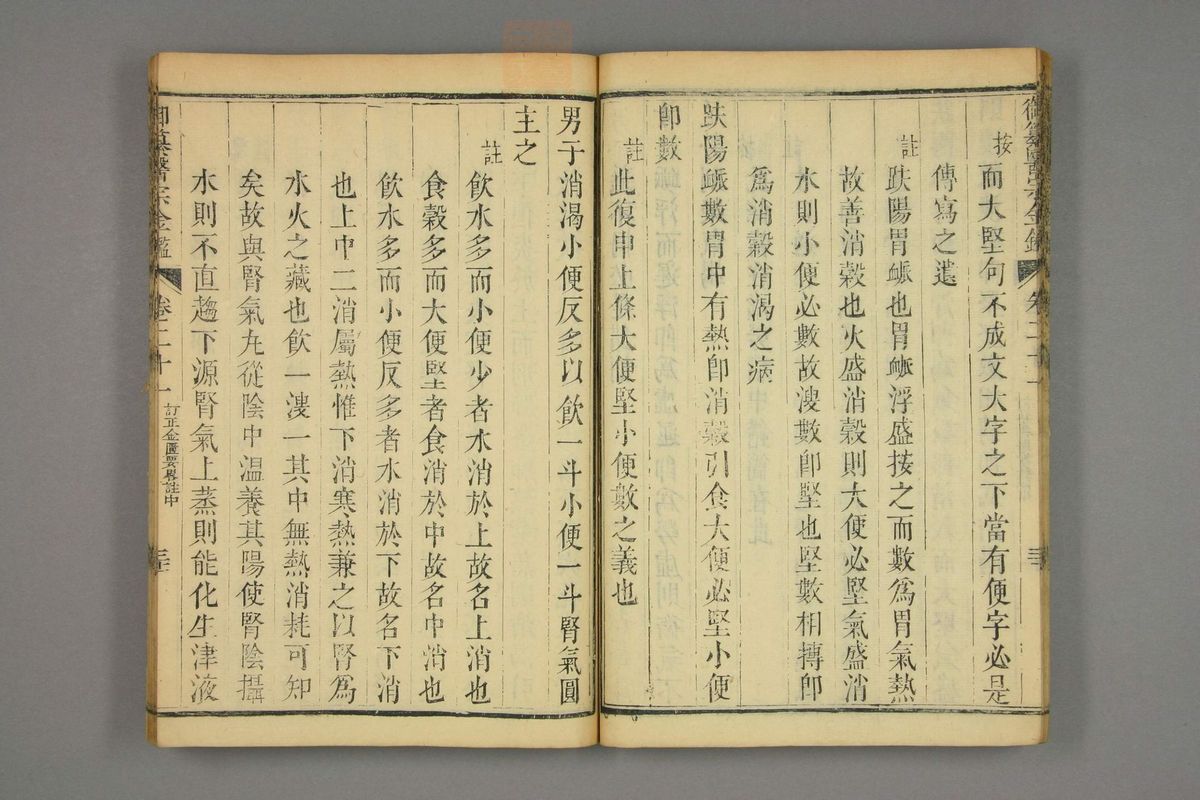 御纂醫宗金鑑 卷二十一
按而大堅句不成文大字之下當有便字必是
傳寫之遺
註趺陽胃脈也胃脈浮盛按之而數爲胃氣熱
故善消穀也火盛消穀則大便必堅氣盛消
水則小便必數故溲數即堅也堅數相搏即
爲消穀消渴之病
趺陽脈數胃中有熱即消穀引食大便必堅小便
即數
註此復申上條大便堅小便數之義也
男子消渴小便反多以飲一斗小便一斗腎氣圓
主之
註飲水多而小便少者水消於上故名上消也
食穀多而大便堅者食消於中故名中消也
飲水多而小便反多者水消於下故名下消
也上中二消屬熱惟下消寒熱兼之以腎爲
水火之藏也飲一溲一其中無熱消耗可知
矣故與腎氣丸從陰中温養其陽使腎陰攝
水則不直趨下源腎氣上蒸則能化生津液
御纂醫宗金鑑 卷二十一 訂正金匱要畧註中